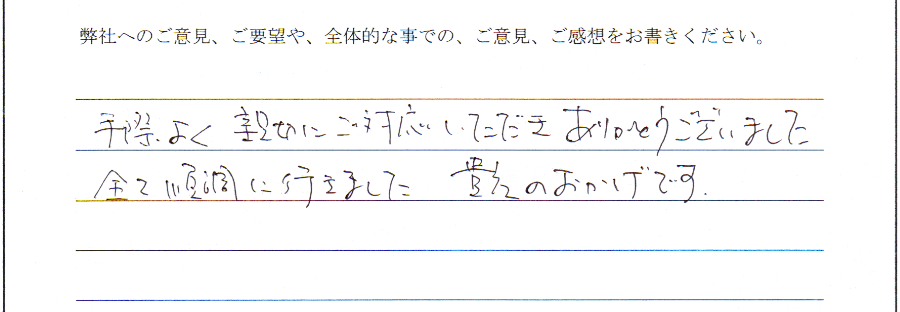 弊社へのご意見、ご要望や、全体的な事での、ご意見、ご感想をお書きください。
手際よく 親切にご対応いただき ありがとうございました
全て順調に行きました 貴社のおかげです.